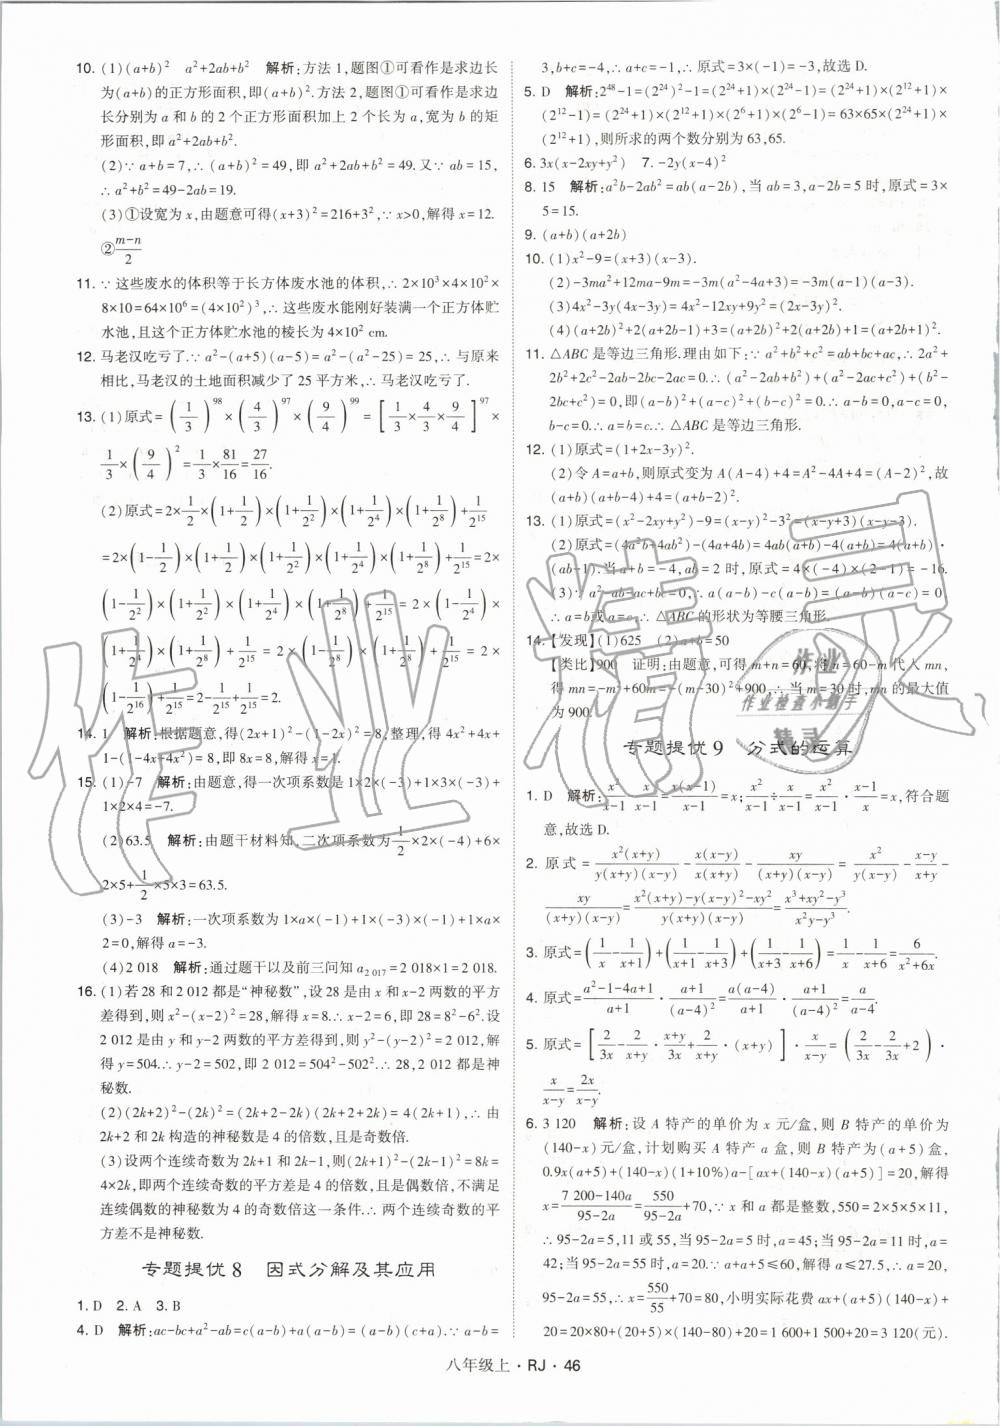 10. (1)(a+b)²　a²+2ab+b²　解析:方法 1,题图①可看作是求边长
为(a+b)的正方形面积,即(a+b)². 方法 2,题图①可看作是求边
长分别为 a 和 b 的 2 个正方形面积加上 2 个长为 a,宽为 b 的矩
形面积,即 a²+2ab+b².
(2)∵ a+b=7,∴ (a+b)²=49,即 a²+2ab+b²=49. 又∵ ab=15,
∴ a²+b²=49-2ab=19.
(3)①设宽为 x,由题意可得(x+3)²=216+3²,∵ x>0,解得 x=12.
②(m-n)/2
11. ∵ 这些废水的体积等于长方体废水池的体积,∴ 2×10³×4×10²×
8×10=64×10⁶=(4×10²)³,∴ 这些废水能刚好装满一个正方体贮
水池,且这个正方体贮水池的棱长为 4×10² cm.
12. 马老汉吃亏了.∵ a²-(a+5)(a-5)=a²-(a²-25)=25,∴ 与原来
相比,马老汉的土地面积减少了 25 平方米,∴ 马老汉吃亏了.
13. (1)原式=(1/3)^98×(4/3)^97×(9/4)^99=[1/3×4/3×9/4]^97×
1/3×(9/4)²=1/3×81/16=27/16.
(2)原式=2×1/2×(1+1/2)×(1+1/2²)×(1+1/2⁴)×(1+1/2⁸)+1/2¹⁵
=2×(1-1/2)×(1+1/2)×(1+1/2²)×(1+1/2⁴)×(1+1/2⁸)+1/2¹⁵=2×
(1-1/2²)×(1+1/2²)×(1+1/2⁴)×(1+1/2⁸)+1/2¹⁵=2×(1-1/2⁴)×
(1+1/2⁴)×(1+1/2⁸)+1/2¹⁵=2×(1-1/2⁸)×(1+1/2⁸)+1/2¹⁵=2×
(1-1/2¹⁶)+1/2¹⁵=2-1/2¹⁵+1/2¹⁵=2.
14. 1　解析:根据题意,得(2x+1)²-(1-2x)²=8,整理,得 4x²+4x+
1-(1-4x+4x²)=8,即 8x=8,解得 x=1.
15. (1)-7　解析:由题意,得一次项系数是 1×2×(-3)+1×3×(-3)+
1×2×4=-7.
(2)63.5　解析:由题干材料知,二次项系数为1/2×2×(-4)+6×
2×5+1/2×5×3=63.5.
(3)-3　解析:一次项系数为 1×a×(-1)+1×(-3)×(-1)+1×a×
2=0,解得 a=-3.
(4)2 018　解析:通过题干以及前三问知 a₂₀₁₇=2 018×1=2 018.
16. (1)若 28 和 2 012 都是“神秘数”,设 28 是由 x 和 x-2 两数的平方
差得到,则 x²-(x-2)²=28,解得 x=8.∴ x-2=6,即 28=8²-6². 设
2 012 是由 y 和 y-2 两数的平方差得到,则 y²-(y-2)²=2 012,解
得 y=504.∴ y-2=502,即 2 012=504²-502²,∴ 28,2 012 都是神
秘数.
(2)(2k+2)²-(2k)²=(2k+2-2k)(2k+2+2k)=4(2k+1),∴ 由
2k+2 和 2k 构造的神秘数是 4 的倍数,且是奇数倍.
(3)设两个连续奇数为 2k+1 和 2k-1,则(2k+1)²-(2k-1)²=8k=
4×2k,即两个连续奇数的平方差是 4 的倍数,且是偶数倍,不满足
连续偶数的神秘数为 4 的奇数倍这一条件.∴ 两个连续奇数的平
方差不是神秘数.
专题提优 8　因式分解及其应用
1. D　2. A　3. B
4. D　解析:ac-bc+a²-ab=c(a-b)+a(a-b)=(a-b)(c+a).∵ a-b=
3,b+c=-4,∴ a+c=-1,∴ 原式=3×(-1)=-3,故选 D.
5. D　解析:2⁴⁸-1=(2²⁴)²-1=(2²⁴+1)(2²⁴-1)=(2²⁴+1)×(2¹²+1)×
(2¹²-1)=(2²⁴+1)×(2¹²+1)×(2⁶+1)×(2⁶-1)=63×65×(2²⁴+1)×
(2¹²+1),则所求的两个数分别为 63,65.
6. 3x(x-2xy+y²)　7. -2y(x-4)²
8. 15　解析:a²b-2ab²=ab(a-2b),当 ab=3,a-2b=5 时,原式=3×
5=15.
9. (a+b)(a+2b)
10. (1)x²-9=(x+3)(x-3).
(2)-3ma²+12ma-9m=-3m(a²-4a+3)=-3m(a-1)(a-3).
(3)4x²-3y(4x-3y)=4x²-12xy+9y²=(2x-3y)².
(4)(a+2b)²+2(a+2b-1)+3=(a+2b)²+2(a+2b)+1=(a+2b+1)².
11. △ABC 是等边三角形.理由如下:∵ a²+b²+c²=ab+bc+ac,∴ 2a²+
2b²+2c²-2ab-2bc-2ac=0.∴ (a²-2ab+b²)+(a²-2ac+c²)+(b²-
2bc+c²)=0,即(a-b)²+(a-c)²+(b-c)²=0.∴ a-b=0,a-c=0,
b-c=0.∴ a=b=c.∴ △ABC 是等边三角形.
12. (1)原式=(1+2x-3y)².
(2)令 A=a+b,则原式变为 A(A-4)+4=A²-4A+4=(A-2)²,故
(a+b)(a+b-4)+4=(a+b-2)².
13. (1)原式=(x²-2xy+y²)-9=(x-y)²-3²=(x-y+3)(x-y-3).
(2)原式=(4a²b+4ab²)-(4a+4b)=4ab(a+b)-4(a+b)=4(a+b)·
(ab-1).当 a+b=-4,ab=2 时,原式=4×(-4)×(2-1)=-16.
(3)∵ a²-ab-ac+bc=0,∴ a(a-b)-c(a-b)=(a-b)(a-c)=0
∴ a=b或 a=c.∴ △ABC 的形状为等腰三角形.
14. 【发现】(1)625　(2)a+b=50
【类比】900　证明:由题意,可得 m+n=60,将 n=60-m 代入 mn,
得 mn=-m²+60m=-(m-30)²+900,∴ 当 m=30 时,mn 的最大值
为 900.
专题提优 9　分式的运算
1. D　解析:x²/(x-1)-x/(x-1)=x(x-1)/(x-1)=x;x²/(x-1)÷x/(x-1)=x²/(x-1)·(x-1)/x=x,符合题
意,故选 D.
2. 原式=x²(x+y)/[y(x+y)(x-y)]-x(x-y)/[(x+y)(x-y)]-xy/[(x+y)(x-y)]=x²/[y(x-y)]-(x-y)/(x+y)-
xy/[(x+y)(x-y)]=[x²(x+y)-y(x-y)²-xy²]/[y(x+y)(x-y)]=(x³+xy²-y³)/(x²y-y³).
3. 原式=(1/x-1/(x+1))+(1/(x+1)-1/(x+3))+(1/(x+3)-1/(x+6))=1/x-1/(x+6)=6/(x²+6x).
4. 原式=(a²-1-4a+1)/(a+1)·(a+1)/(a-4)²=a(a-4)/(a+1)·(a+1)/(a-4)²=a/(a-4).
5. 原式=[2/(3x)-2/(x+y)·(x+y)/(3x)+2/(x+y)·(x+y)]·x/(x-y)=(2/(3x)-2/(3x)+2)·
x/(x-y)=2x/(x-y).
6. 3 120　解析:设 A 特产的单价为 x 元/盒,则 B 特产的单价为
(140-x)元/盒,计划购买 A 特产 a 盒,则 B 特产为(a+5)盒,
0.9x(a+5)+(140-x)(1+10%)a-[ax+(140-x)(a+5)]=20,解得
x=(7 200-140a)/(95-2a)=550/(95-2a)+70,∵ x 和 a 都是整数,550=2×5×5×11,
∴ 95-2a=5,11 或 55,当 95-2a=5 时,a=45;当 95-2a=11 时,
a=42;当 95-2a=55 时,a=20;∵ a+a+5≤60,解得 a≤27.5,∴ a=20,
95-2a=55,∴ x=550/55+70=80,小明实际花费 ax+(a+5)(140-x)+
20=20×80+(20+5)(140-80)+20=1 600+1 500+20=3 120(元).
八年级上·RJ·46
作业精灵
作业
作业检查小助手
精灵